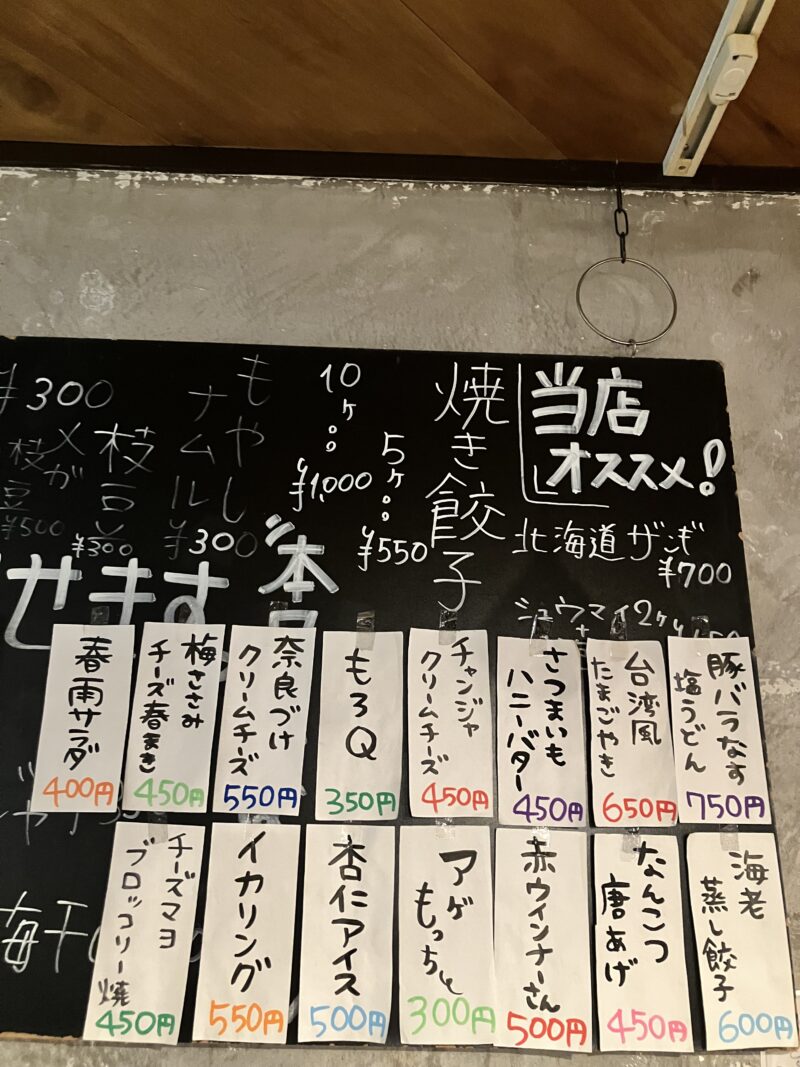 当店
オススメ!
北海道ザンギ
¥700
シュウマイ2ヶ
焼き餃子
5ヶ。。
¥550
10ヶ。。
¥1,000
もやし
ナムル
¥300
枝豆
¥300
メガ
枝豆
¥500
¥300
本
せます。
豚バラなす
塩うどん
750円
台湾風
たまごやき
650円
さつまいも
ハニーバター
450円
チャンジャ
クリームチーズ
450円
もろQ
350円
奈良づけ
クリームチーズ
550円
梅ささみ
チーズ春まき
450円
春雨サラダ
400円
海老
蒸し餃子
600円
なんこつ
唐あげ
450円
赤ウインナーさん
500円
アゲ
もっちぃ
300円
杏仁アイス
500円
イカリング
550円
チーズマヨ
ブロッコリー焼
450円
梅干